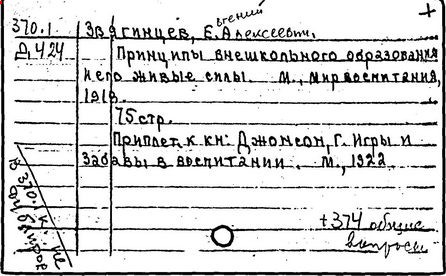 +
370.1 Звягинцев, Евгений Алексеевич.
Д424 Принципы внешкольного образования
и его живые силы. М., мир воспитания,
1919.
75 стр.
Приплет. к кн: Джонсон, Г. Игры и
забавы в воспитании. М., 1922
+374 общие
вопросы
370.1 к. не